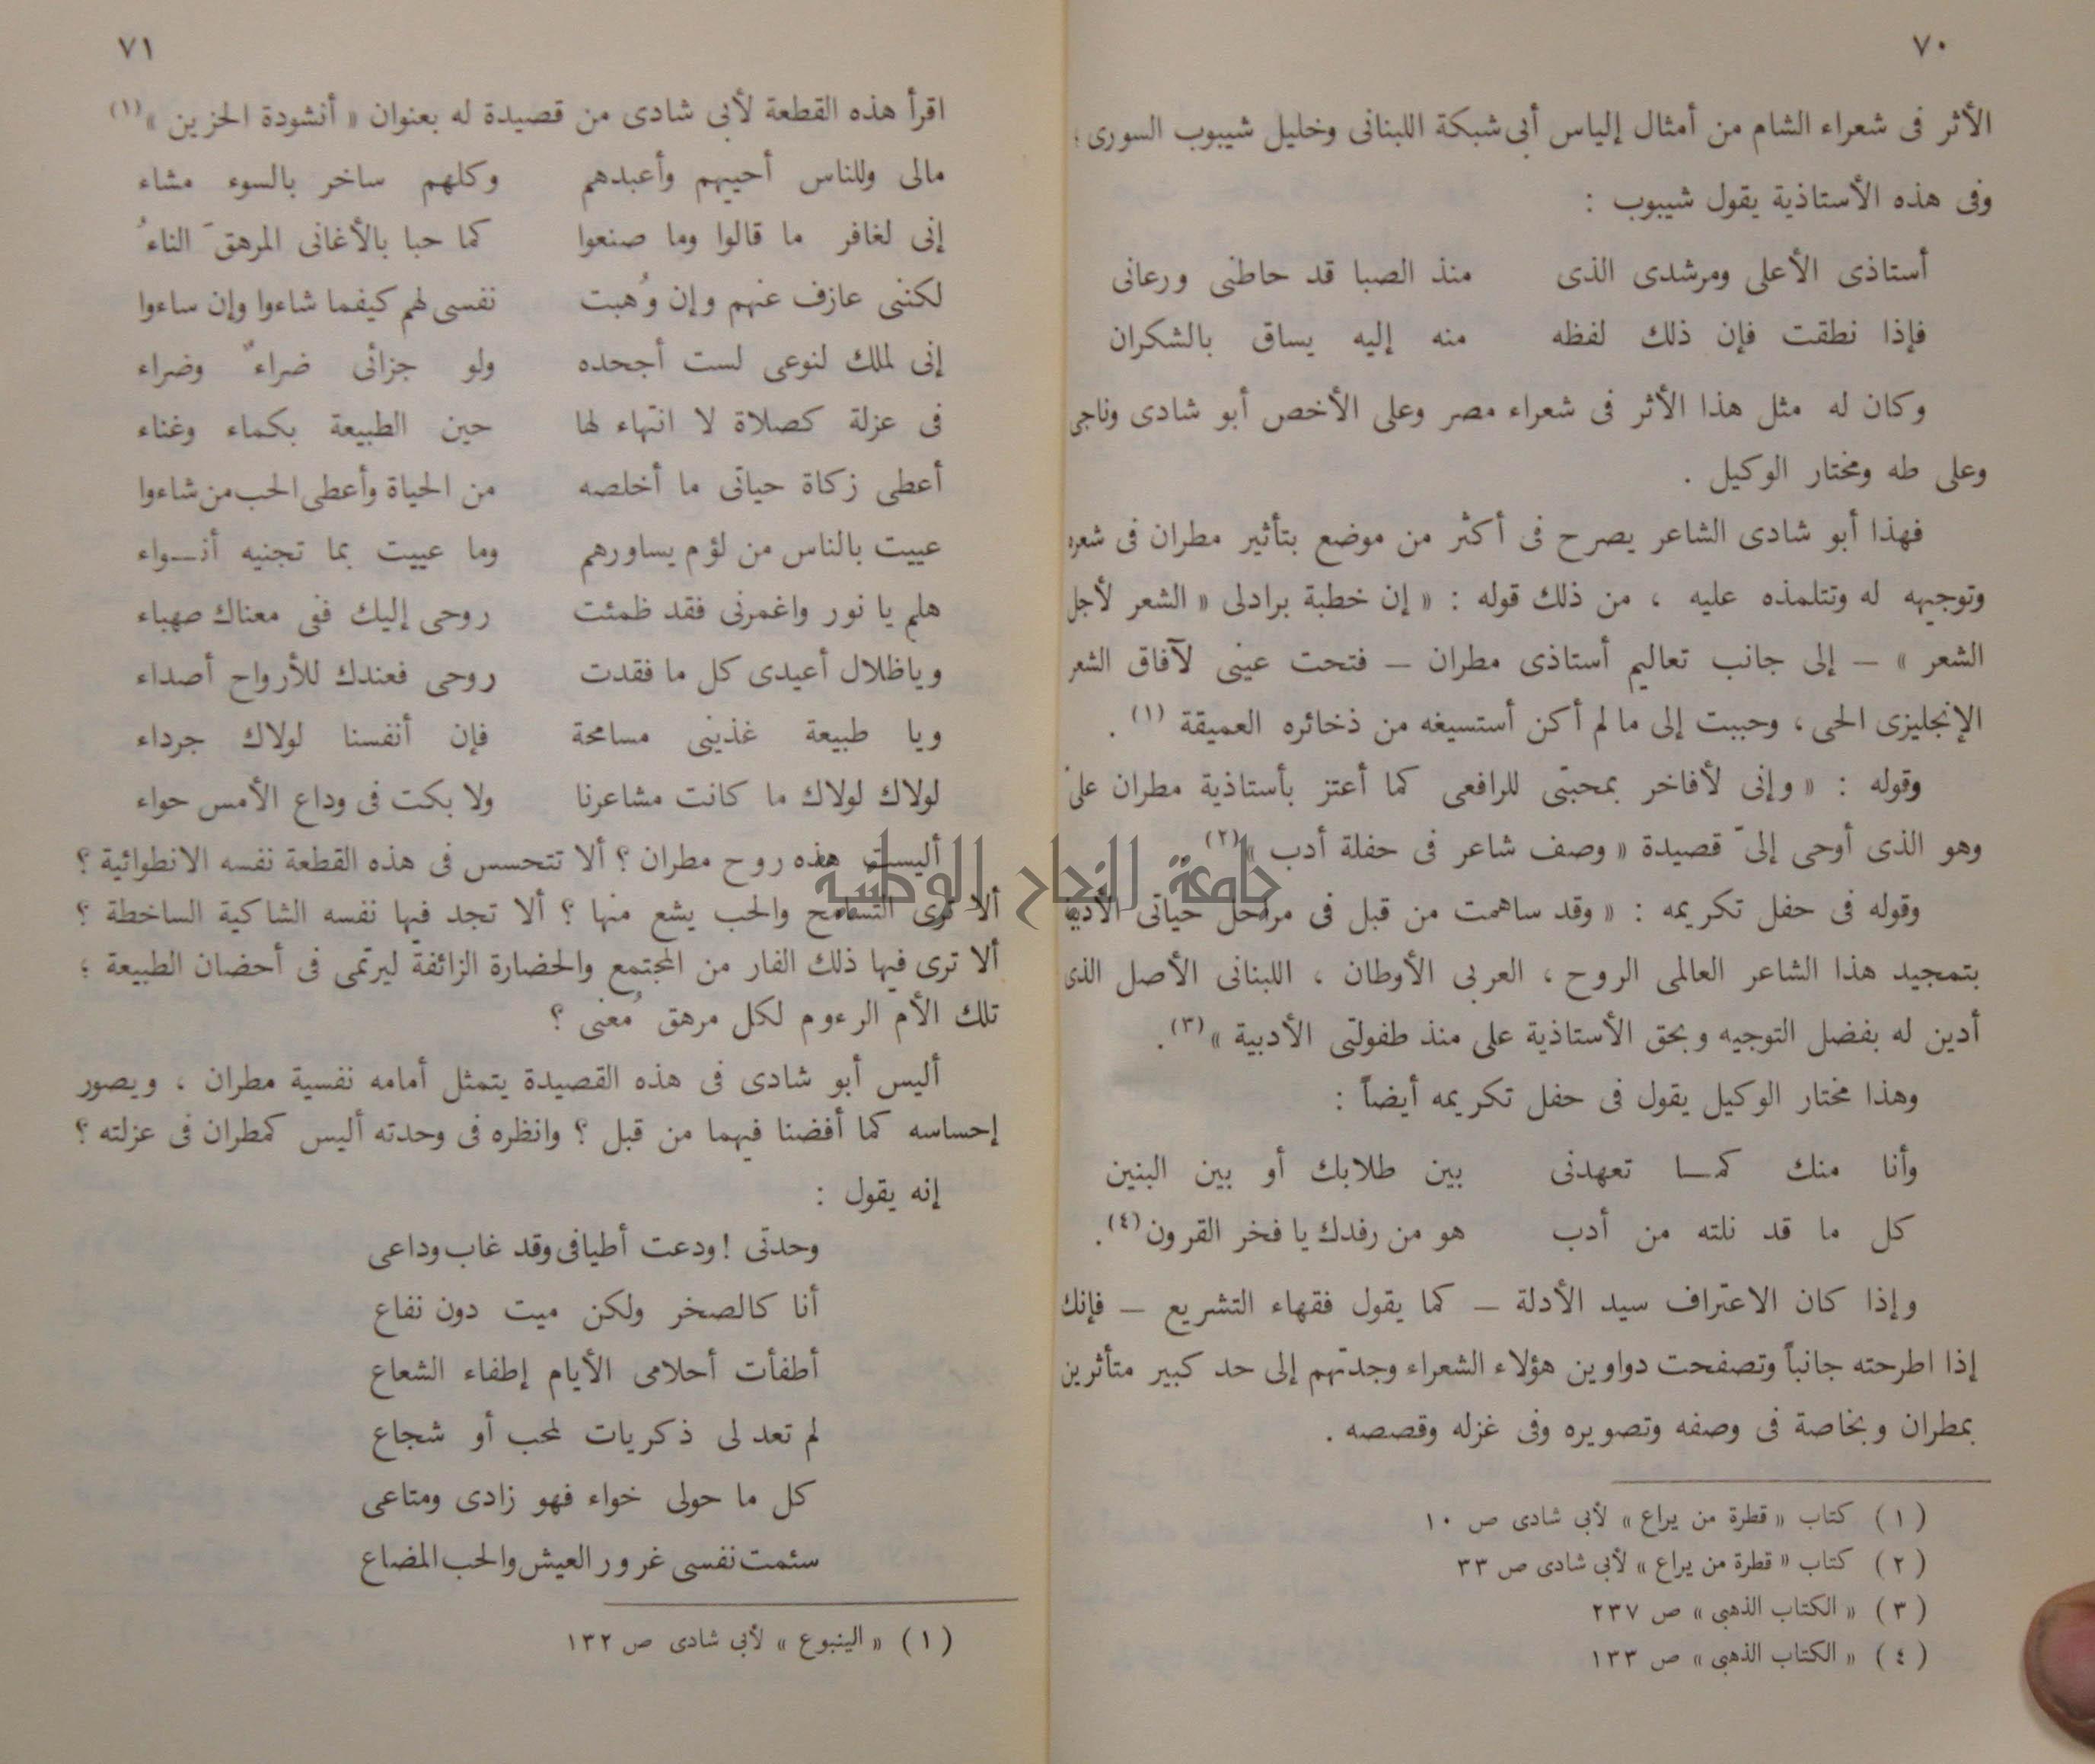 ٧٠
الأثر فى شعراء الشام من أمثال إلياس أبى شبكة اللبنانى وخليل شيبوب السورى ؛
وفى هذه الأستاذية يقول شيبوب :
أستاذى الأعلى ومرشدى الذى منذ الصبا قد حاطنى ورعانى
فإذا نطقت فإن ذلك لفظه منه إليه يساق بالشكران
وكان له مثل هذا الأثر فى شعراء مصر وعلى الأخص أبو شادى وناجى
وعلى طه ومختار الوكيل .
فهذا أبو شادى الشاعر يصرح فى أكثر من موضع بتأثير مطران فى شعره
وتوجيهه له وتتلمذه عليه ، من ذلك قوله : « إن خطبة برادلى « الشعر لأجل
الشعر » – إلى جانب تعاليم أستاذى مطران – فتحت عينى لآفاق الشعر
الإنجليزى الحى ، وحببت إلى ما لم أكن أستسيغه من ذخائره العميقة (١) .
وقوله : « وإنى لأفاخر بمحبتى للرافعى كما أعتز بأستاذية مطران علىّ
وهو الذى أوحى إلىّ قصيدة « وصف شاعر فى حفلة أدب »(٢)
وقوله فى حفل تكريمه : « وقد ساهمت من قبل فى مراحل حياتى
بتمجيد هذا الشاعر العالمى الروح ، العربى الأوطان ، اللبنانى الأصل الذى
أدين له بفضل التوجيه وبحق الأستاذية على منذ طفولتى الأدبية »(٣).
وهذا مختار الوكيل يقول فى حفل تكريمه أيضاً :
وأنا منك كمـا تعهدنى بين طلابك أو بين البنين
كل ما قد نلته من أدب هو من رفدك يا فخر القرون(٤).
وإذا كان الاعتراف سيد الأدلة – كما يقول فقهاء التشريع – فإنك
إذا اطرحته جانباً وتصفحت دواوين هؤلاء الشعراء وجدتهم إلى حد كبير متأثرين
بمطران وبخاصة فى وصفه وتصويره وفى غزله وقصصه .
(١) كتاب « قطرة من يراع » لأبى شادى ص ١٠
(٢) كتاب « قطرة من يراع » لأبى شادى ص ٣٣
(٣) « الكتاب الذهبى » ص ٢٣٧
(٤) « الكتاب الذهبى » ص ١٣٣
٧١
اقرأ هذه القطعة لأبى شادى من قصيدة له بعنوان « أنشودة الحزين »(١)
مالى وللناس أحييهم وأعبدهم وكلهم ساخر بالسوء مشاء
إنى لغافر ما قالوا وما صنعوا كما حبا بالأغانى المرهقَ الناءُ
لكننى عازف عنهم وإن وُهبت نفسى لهم كيفما شاءوا وإن ساءوا
إنى لملك لنوعى لست أجحده ولو جزائى ضراءٌ وضراء
فى عزلة كصلاة لا انتهاء لها حين الطبيعة بكماء وغناء
أعطى زكاة حياتى ما أخلصه من الحياة وأعطى الحب من شاءوا
عييت بالناس من لؤم يساورهم وما عييت بما تجنيه أنـواء
هلم يا نور واغمرنى فقد ظمئت روحى إليك ففى معناك صهباء
وياظلال أعيدى كل ما فقدت روحى فعندك للأرواح أصداء
ويا طبيعة غذينى مسامحة فإن أنفسنا لولاك جرداء
لولاك لولاك ما كانت مشاعرنا ولا بكت فى وداع الأمس حواء
أليست هذه روح مطران ؟ ألا تتحسس فى هذه القطعة نفسه الانطوائية ؟
ألا ترى التسامح والحب يشع منها ؟ ألا تجد فيها نفسه الشاكية الساخطة ؟
ألا ترى فيها ذلك الفار من المجتمع والحضارة الزائفة ليرتمى فى أحضان الطبيعة ؛
تلك الأم الرءوم لكل مرهق مُعنى ؟
أليس أبو شادى فى هذه القصيدة يتمثل أمامه نفسية مطران ، ويصور
إحساسه كما أفضنا فيهما من قبل ؟ وانظره فى وحدته أليس كمطران فى عزلته ؟
إنه يقول :
وحدتى ! ودعت أطيافى وقد غاب وداعى
أنا كالصخر ولكن ميت دون نفاع
أطفأت أحلامى الأيام إطفاء الشعاع
لم تعد لى ذكريات لمحب أو شجاع
كل ما حولى خواء فهو زادى ومتاعى
سئمت نفسى غرور العيش والحب المضاع
(١) « الينبوع » لأبى شادى ص ١٣٢
جامعة النجاح الوطنية